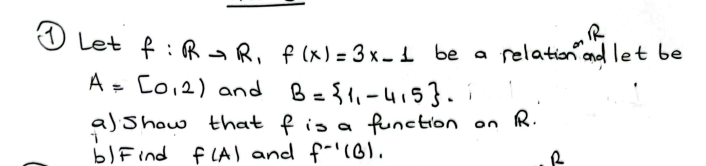 ① Let f : ℝ → ℝ, f(x) = 3x - 1 be a relation on ℝ and let be
A = [0,2) and B = {1, -4, 5}.
a) Show that f is a function on ℝ.
b) Find f(A) and f⁻¹(B).